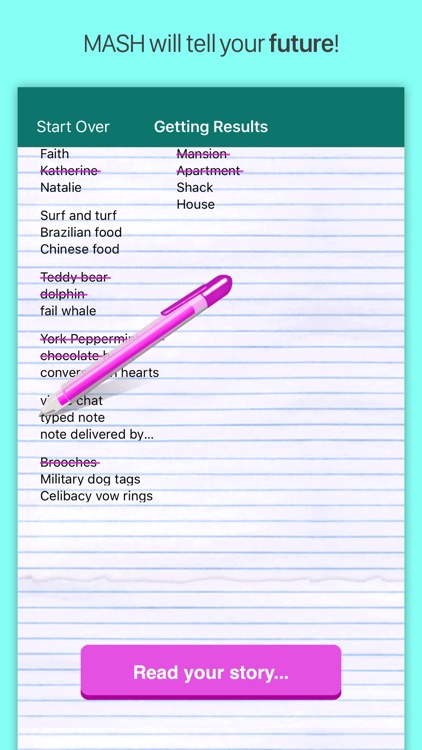 MASH will tell your future!
Start Over Getting Results
Faith
Katherine
Natalie
Mansion
Apartment
Shack
House
Surf and turf
Brazilian food
Chinese food
Teddy bear
dolphin
fail whale
York
chocolate
hearts
chat
typed note
note delivered by...
Brooches
Military dog tags
Celibacy vow rings
Read your story...